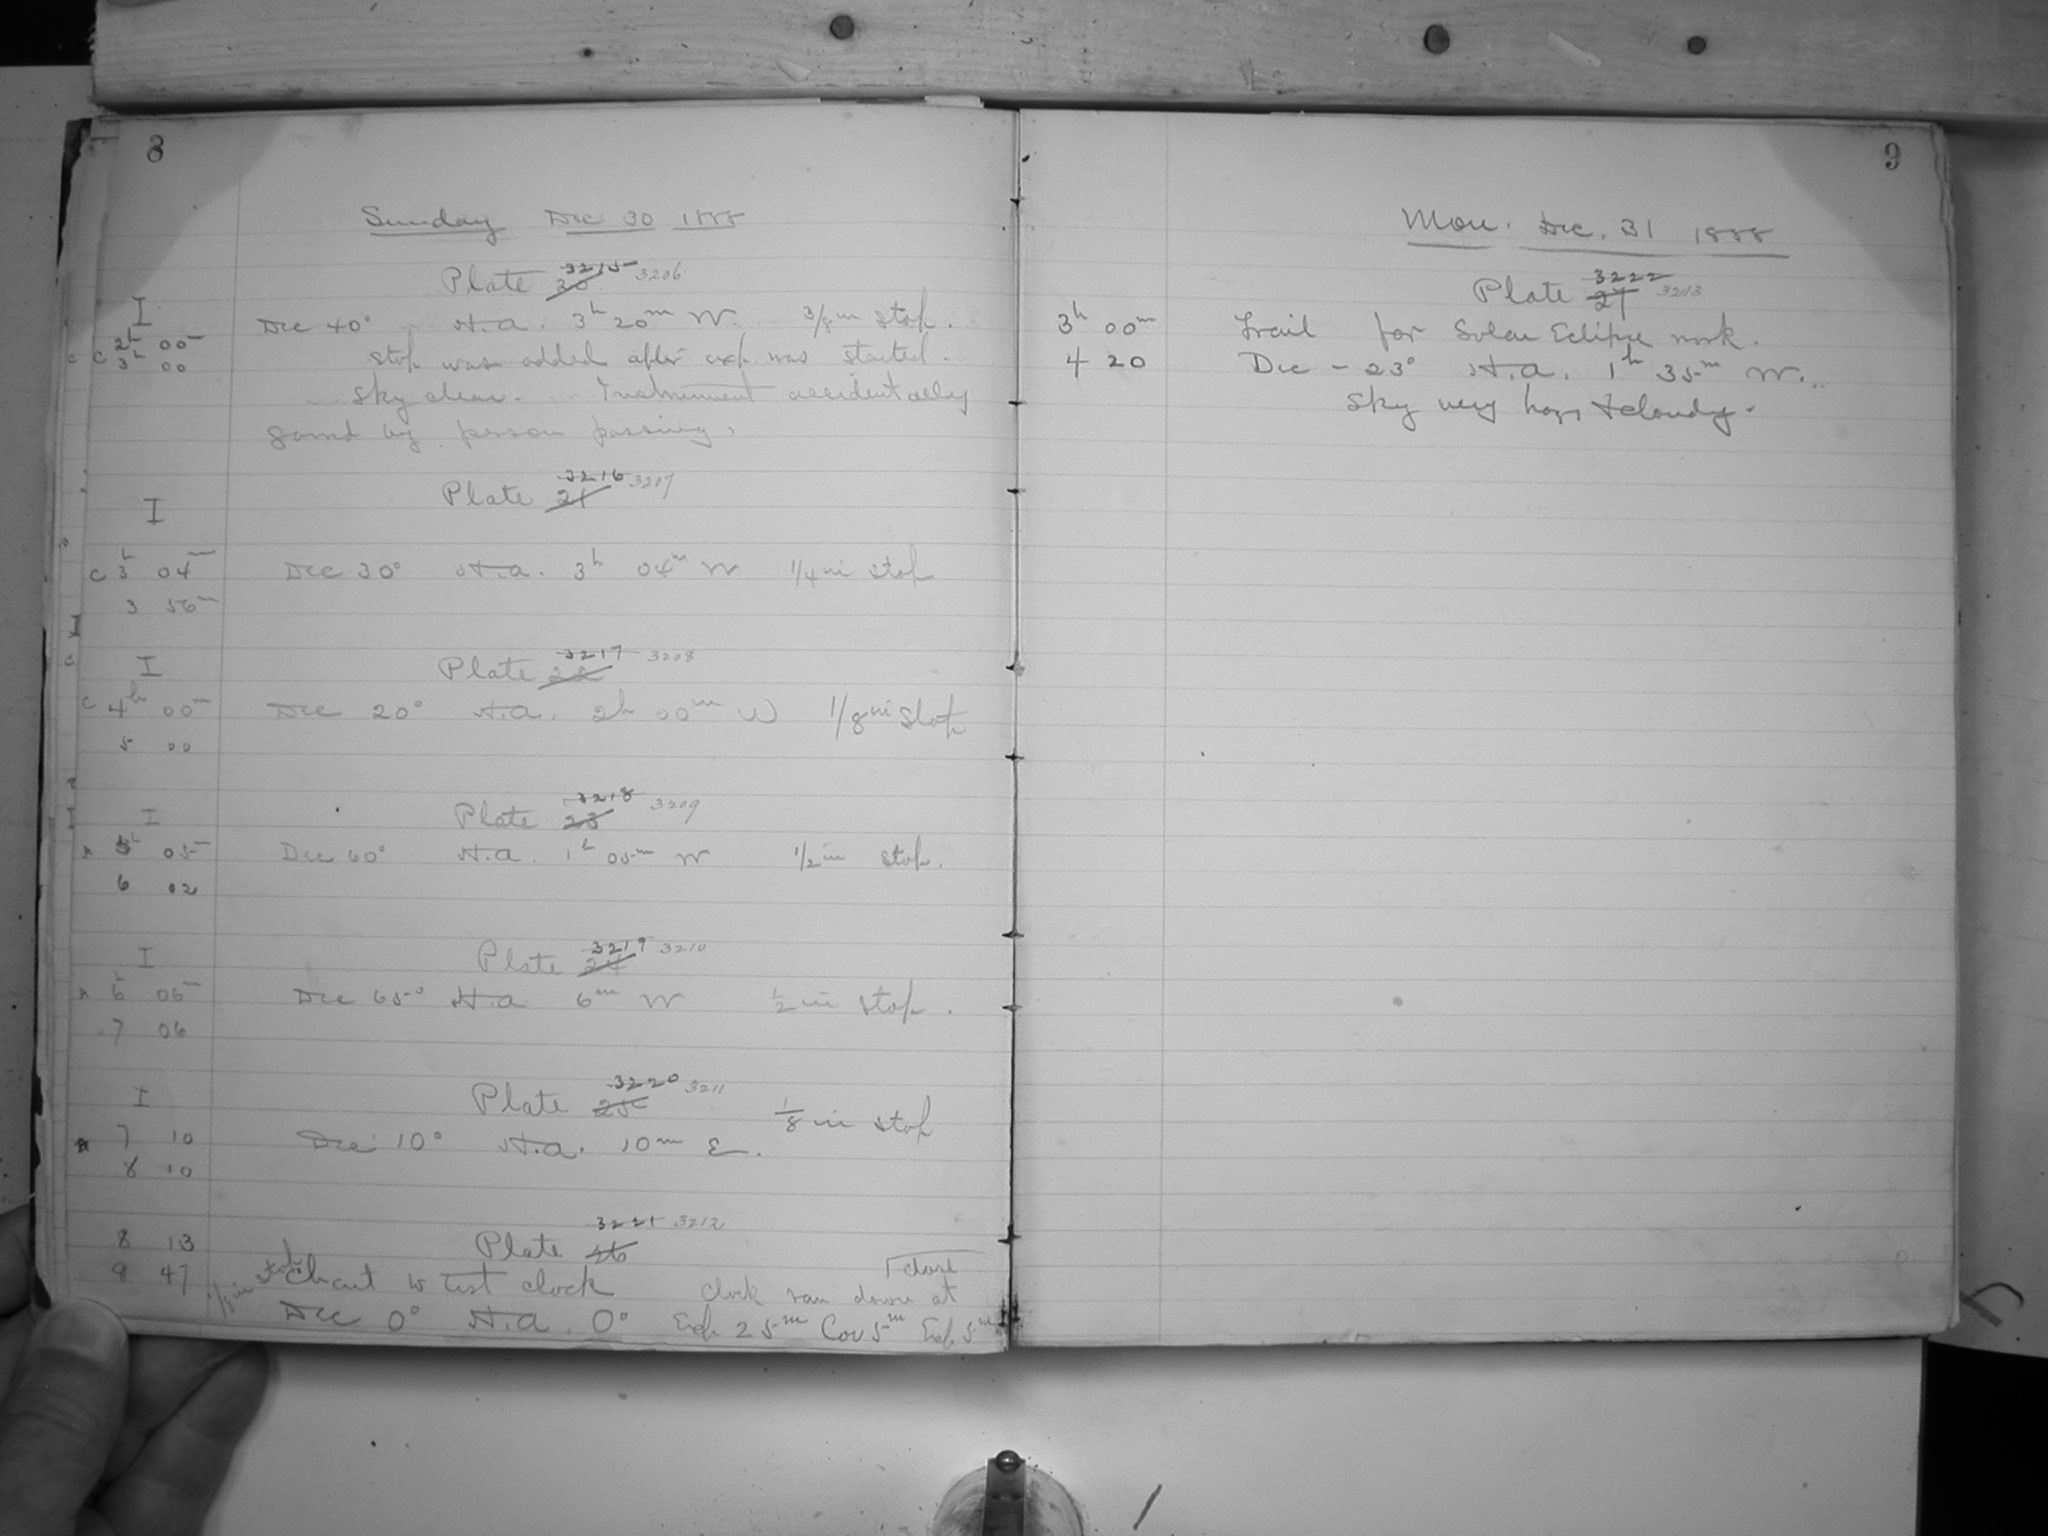 8
Sunday Dec 30 1888
Plate 20 3215 3206
I
Dec 40° H.a. 3h 20m W. 3/8 in stop.
2h 00m
C 3h 00
stop was added after exp. was started.
Sky clear. Instrument accidentally
jarred by person passing.
Plate 21 3216 3207
I
C 3h 04m Dec 30° H.a. 3h 04m W 1/4 in stop
3 56m
Plate 22 3217 3208
I
C 4h 00m Dec 20° H.a. 2h 00m W 1/8 in stop
5 00
Plate 23 3218 3209
I
5h 05m Dec 60° H.a. 1h 05m W 1/2 in stop.
6 02
Plate 24 3219 3210
I
6h 06m Dec 65° H.a 6m W 1/2 in stop.
7 06
Plate 25 3220 3211
I
1/8 in stop
7 10 Dec 10° H.a. 10m E.
8 10
8 13 Plate 26 3221 3212
9 47 1/8 in stop. Chart to test clock clock ran down at close
Dec 0° H.a. 0° Exp. 25m Cov 5m Exp. 5m
9
Mon. Dec. 31 1888
Plate 27 3222 3213
3h 00m Trail for Solar Eclipse work.
4 20 Dec - 23° H.a. 1h 35m W.
Sky very hazy & cloudy.